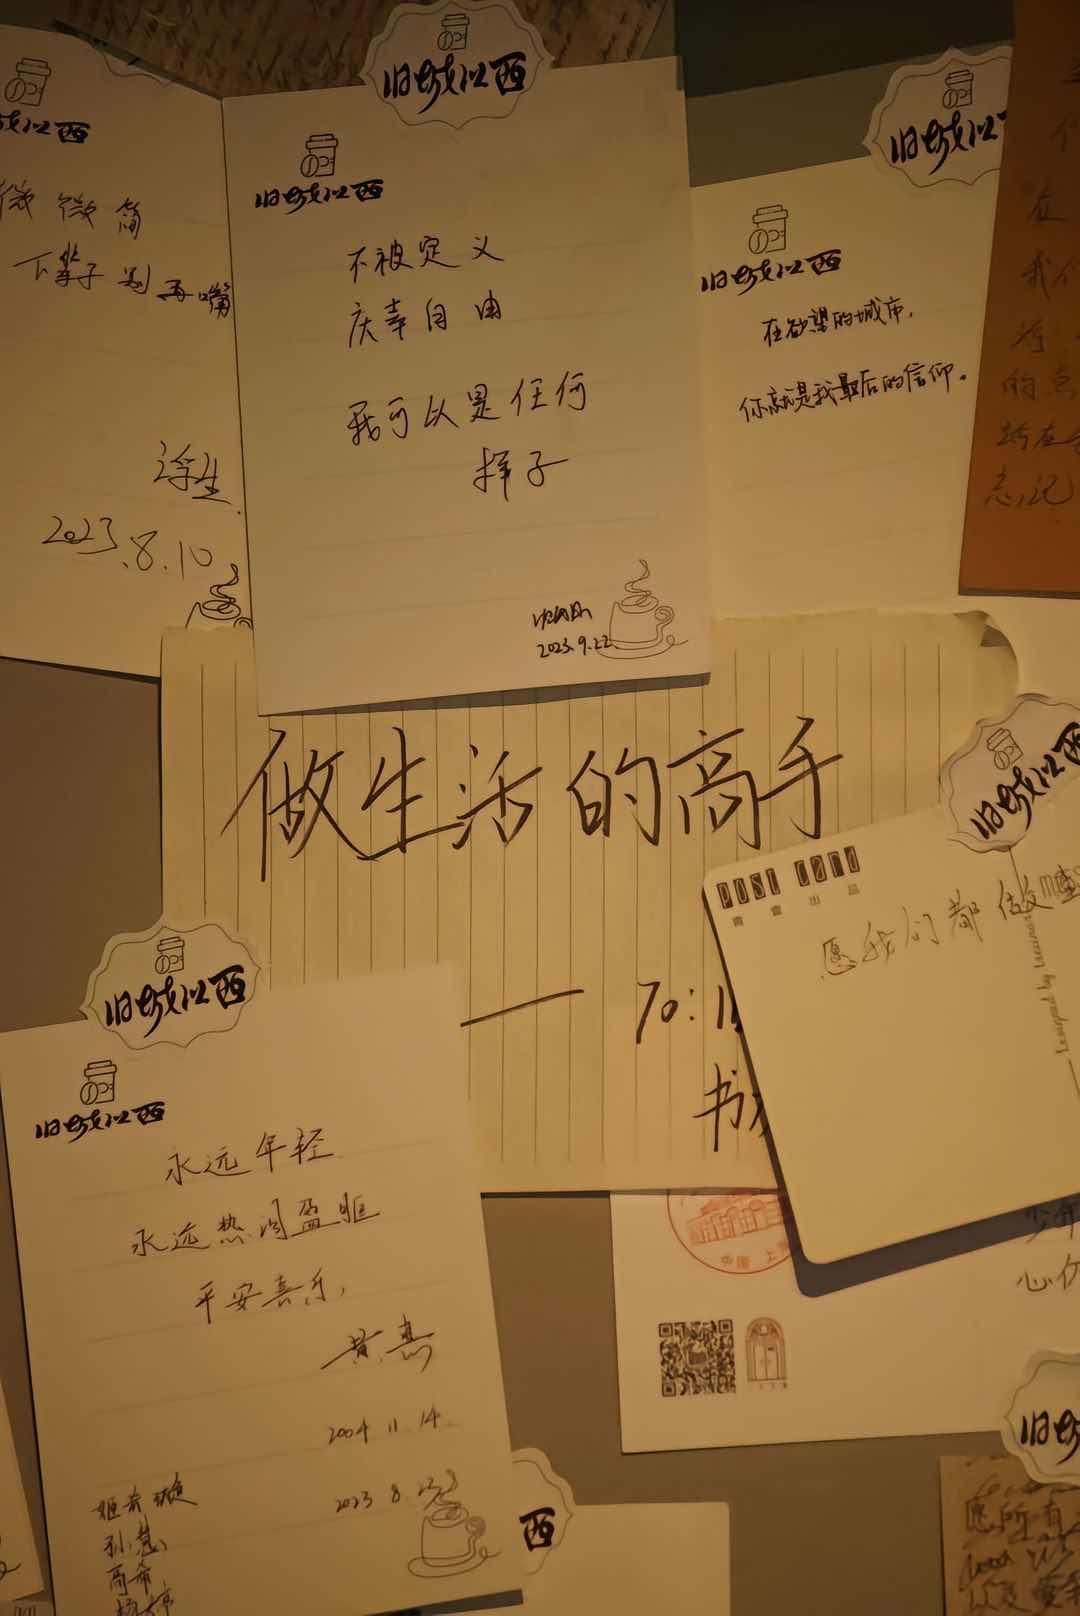 旧城以西
旧城以西
微微简
下辈子别再嘴
浮生
2023.8.10
旧城以西
不被定义
庆幸自由
我可以是任何
样子
2023.9.22
旧城以
旧城以西
在欲望的城市,
你就是我最后的信仰。
在
我们
的点
忘记
做生活的高手
—— 70:
书
旧城以西
POST CARD
青壹出品
愿我们都做
Designed by
旧城以西
旧城以西
永远年轻
永远热泪盈眶
平安喜乐,
黄惠
2004 11. 14
2023 8.
孙慧
高希
中国 上
心仍
西
旧城
愿所有